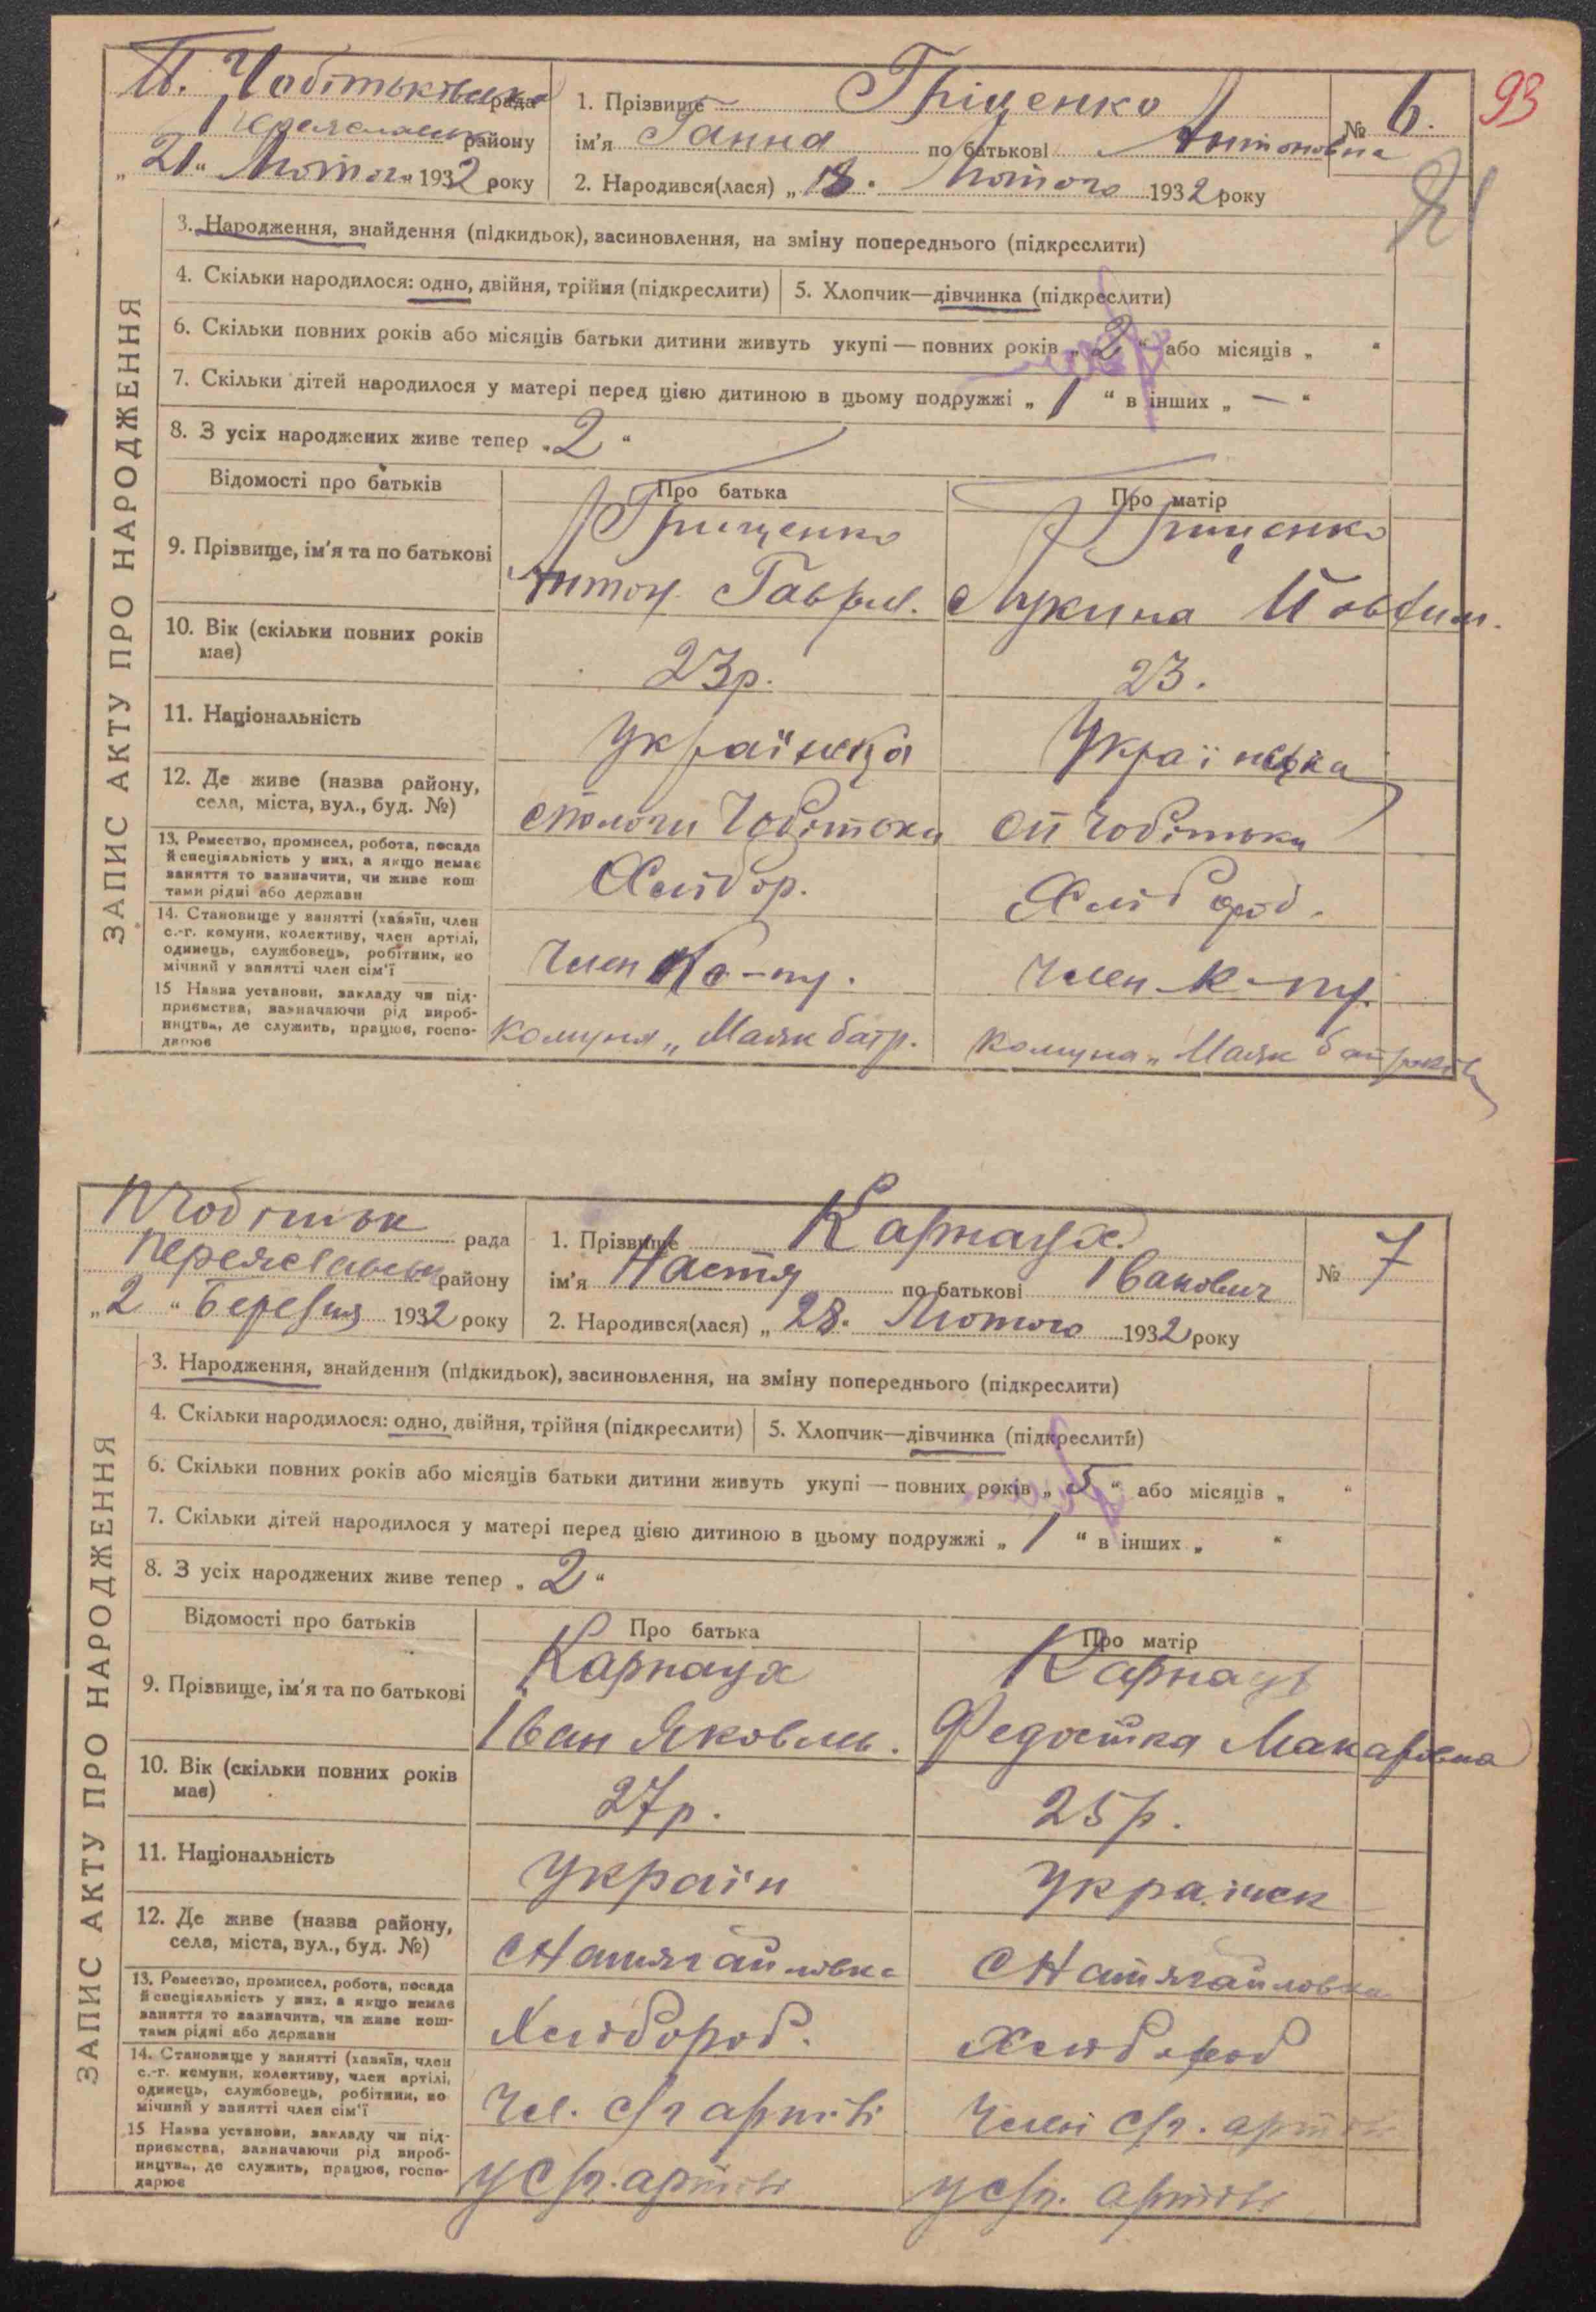 93
П. Чобітьківська рада
Переяславськ району
„21“ Лютого 1932 року
1. Прізвище Гріщенко
ім'я Ганна по батькові Антоновна
№ 6.
2. Народився(лася) „18. Лютого 1932 року
ЗАПИС АКТУ ПРО НАРОДЖЕННЯ
3. Народження, знайдення (підкидьок), засиновлення, на зміну попереднього (підкреслити)
4. Скільки народилося: одно, двійня, трійня (підкреслити) 5. Хлопчик—дівчинка (підкреслити)
6. Скільки повних років або місяців батьки дитини живуть укупі — повних років „2“ або місяців „ “
7. Скільки дітей народилося у матері перед цією дитиною в цьому подружжі „1“ в інших „—“
8. З усіх народжених живе тепер „2“
Відомості про батьків Про батька Про матір
9. Прізвище, ім'я та по батькові Грищенко Грищенко
Антон Гаврил. Лукина Йовфим.
10. Вік (скільки повних років має) 23р. 23.
11. Національність Українська Українська
12. Де живе (назва району, села, міста, вул., буд. №) Чобітьки СП Чобітьки
13. Ремество, промисел, робота, посада й спеціяльність у них, а якщо немає заняття то зазначити, чи живе коштами рідні або держави Хлібор. Хлібороб.
14. Становище у занятті (хазяїн, член с.-г. комуни, колективу, член артілі, одинець, службовець, робітник, помічний у занятті член сім'ї Член Ко-ни. Член К-ни.
15 Назва установи, закладу чи підприємства, зазначаючи рід виробництва, де служить, працює, господарює комуна „Маяк батр. комуна „Маяк батраків
ПЧобітьк рада
Переяславськ району
„2“ Березня 1932 року
1. Прізвище Карнаух.
ім'я Настя по батькові Іванович
№ 7
2. Народився(лася) „28. Лютого 1932 року
ЗАПИС АКТУ ПРО НАРОДЖЕННЯ
3. Народження, знайдення (підкидьок), засиновлення, на зміну попереднього (підкреслити)
4. Скільки народилося: одно, двійня, трійня (підкреслити) 5. Хлопчик—дівчинка (підкреслити)
6. Скільки повних років або місяців батьки дитини живуть укупі — повних років „5“ або місяців „ “
7. Скільки дітей народилося у матері перед цією дитиною в цьому подружжі „1“ в інших „ “
8. З усіх народжених живе тепер „2“
Відомості про батьків Про батька Про матір
9. Прізвище, ім'я та по батькові Карнаух Карнаух
Іван Яковль. Федоська Макаровна
10. Вік (скільки повних років має) 27р. 25р.
11. Національність Україн Українск
12. Де живе (назва району, села, міста, вул., буд. №) С Натягайловка С Натягайловка
13. Ремество, промисел, робота, посада й спеціяльність у них, а якщо немає заняття то зазначити, чи живе коштами рідні або держави Хлібороб. Хлібороб
14. Становище у занятті (хазяїн, член с.-г. комуни, колективу, член артілі, одинець, службовець, робітник, помічний у занятті член сім'ї Чл. с/г артілі Член с/г. артілі
15 Назва установи, закладу чи підприємства, зазначаючи рід виробництва, де служить, працює, господарює у с/г. артілі у с/г. артілі